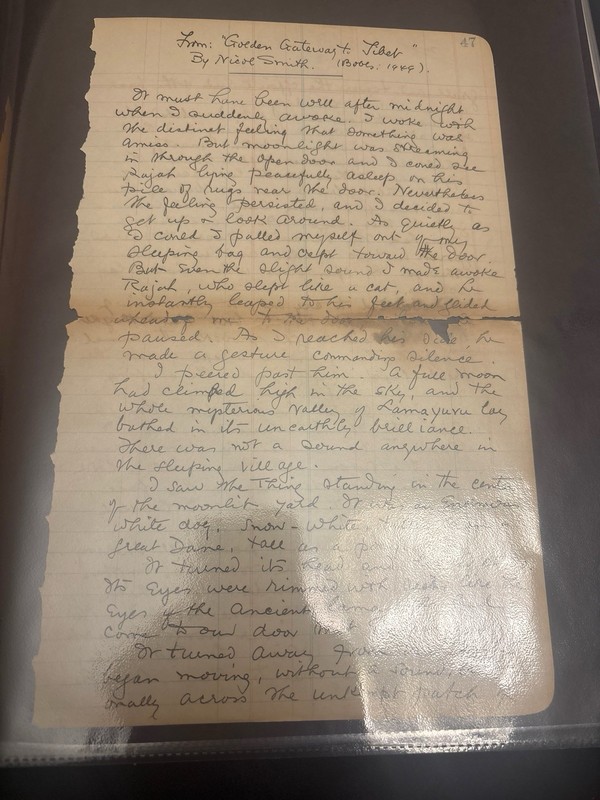 47
From: "Golden Gateway t. Tibet"
By Nicol Smith. (Bobbs: 1949).
It must have been well after midnight
when I suddenly awoke. I woke with
the distinct feeling that something was
amiss. But moonlight was streaming
in through the open door and I could see
Rajah lying peacefully asleep on his
pile of rugs near the door. Nevertheless
the feeling persisted, and I decided to
get up & look around. As quietly as
I could I pulled myself out of my
sleeping bag and crept toward the door.
But even the slight sound I made awoke
Rajah, who slept like a cat, and he
instantly leaped to his feet and glided
ahead of me to the door
paused. As I reached his side he
made a gesture commanding silence.
I peered past him. A full moon
had climbed high in the sky, and the
whole mysterious valley of Lamayuru lay
bathed in its unearthly brilliance.
There was not a sound anywhere in
the sleeping village.
I saw the Thing standing in the cente
of the moonlit yard. It was an enormou
white dog. Snow-white,
great Dane, tall as a po
It turned its head and
Its eyes were rimmed with
eyes of the ancient lama
come to our door
It turned away from
began moving, without a sound,
onally across the unkempt patch